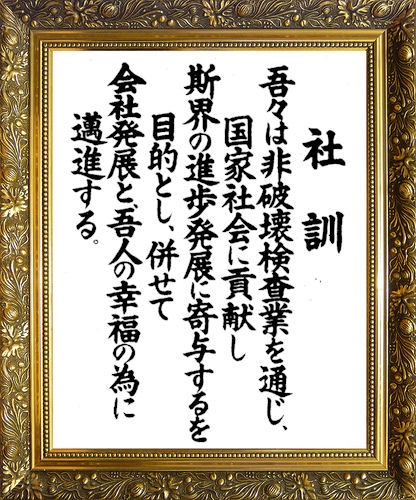 社訓
吾々は非破壊検査業を通じ、
国家社会に貢献し
斯界の進歩発展に寄与するを
目的とし、併せて
会社発展と、吾人の幸福の為に
邁進する。